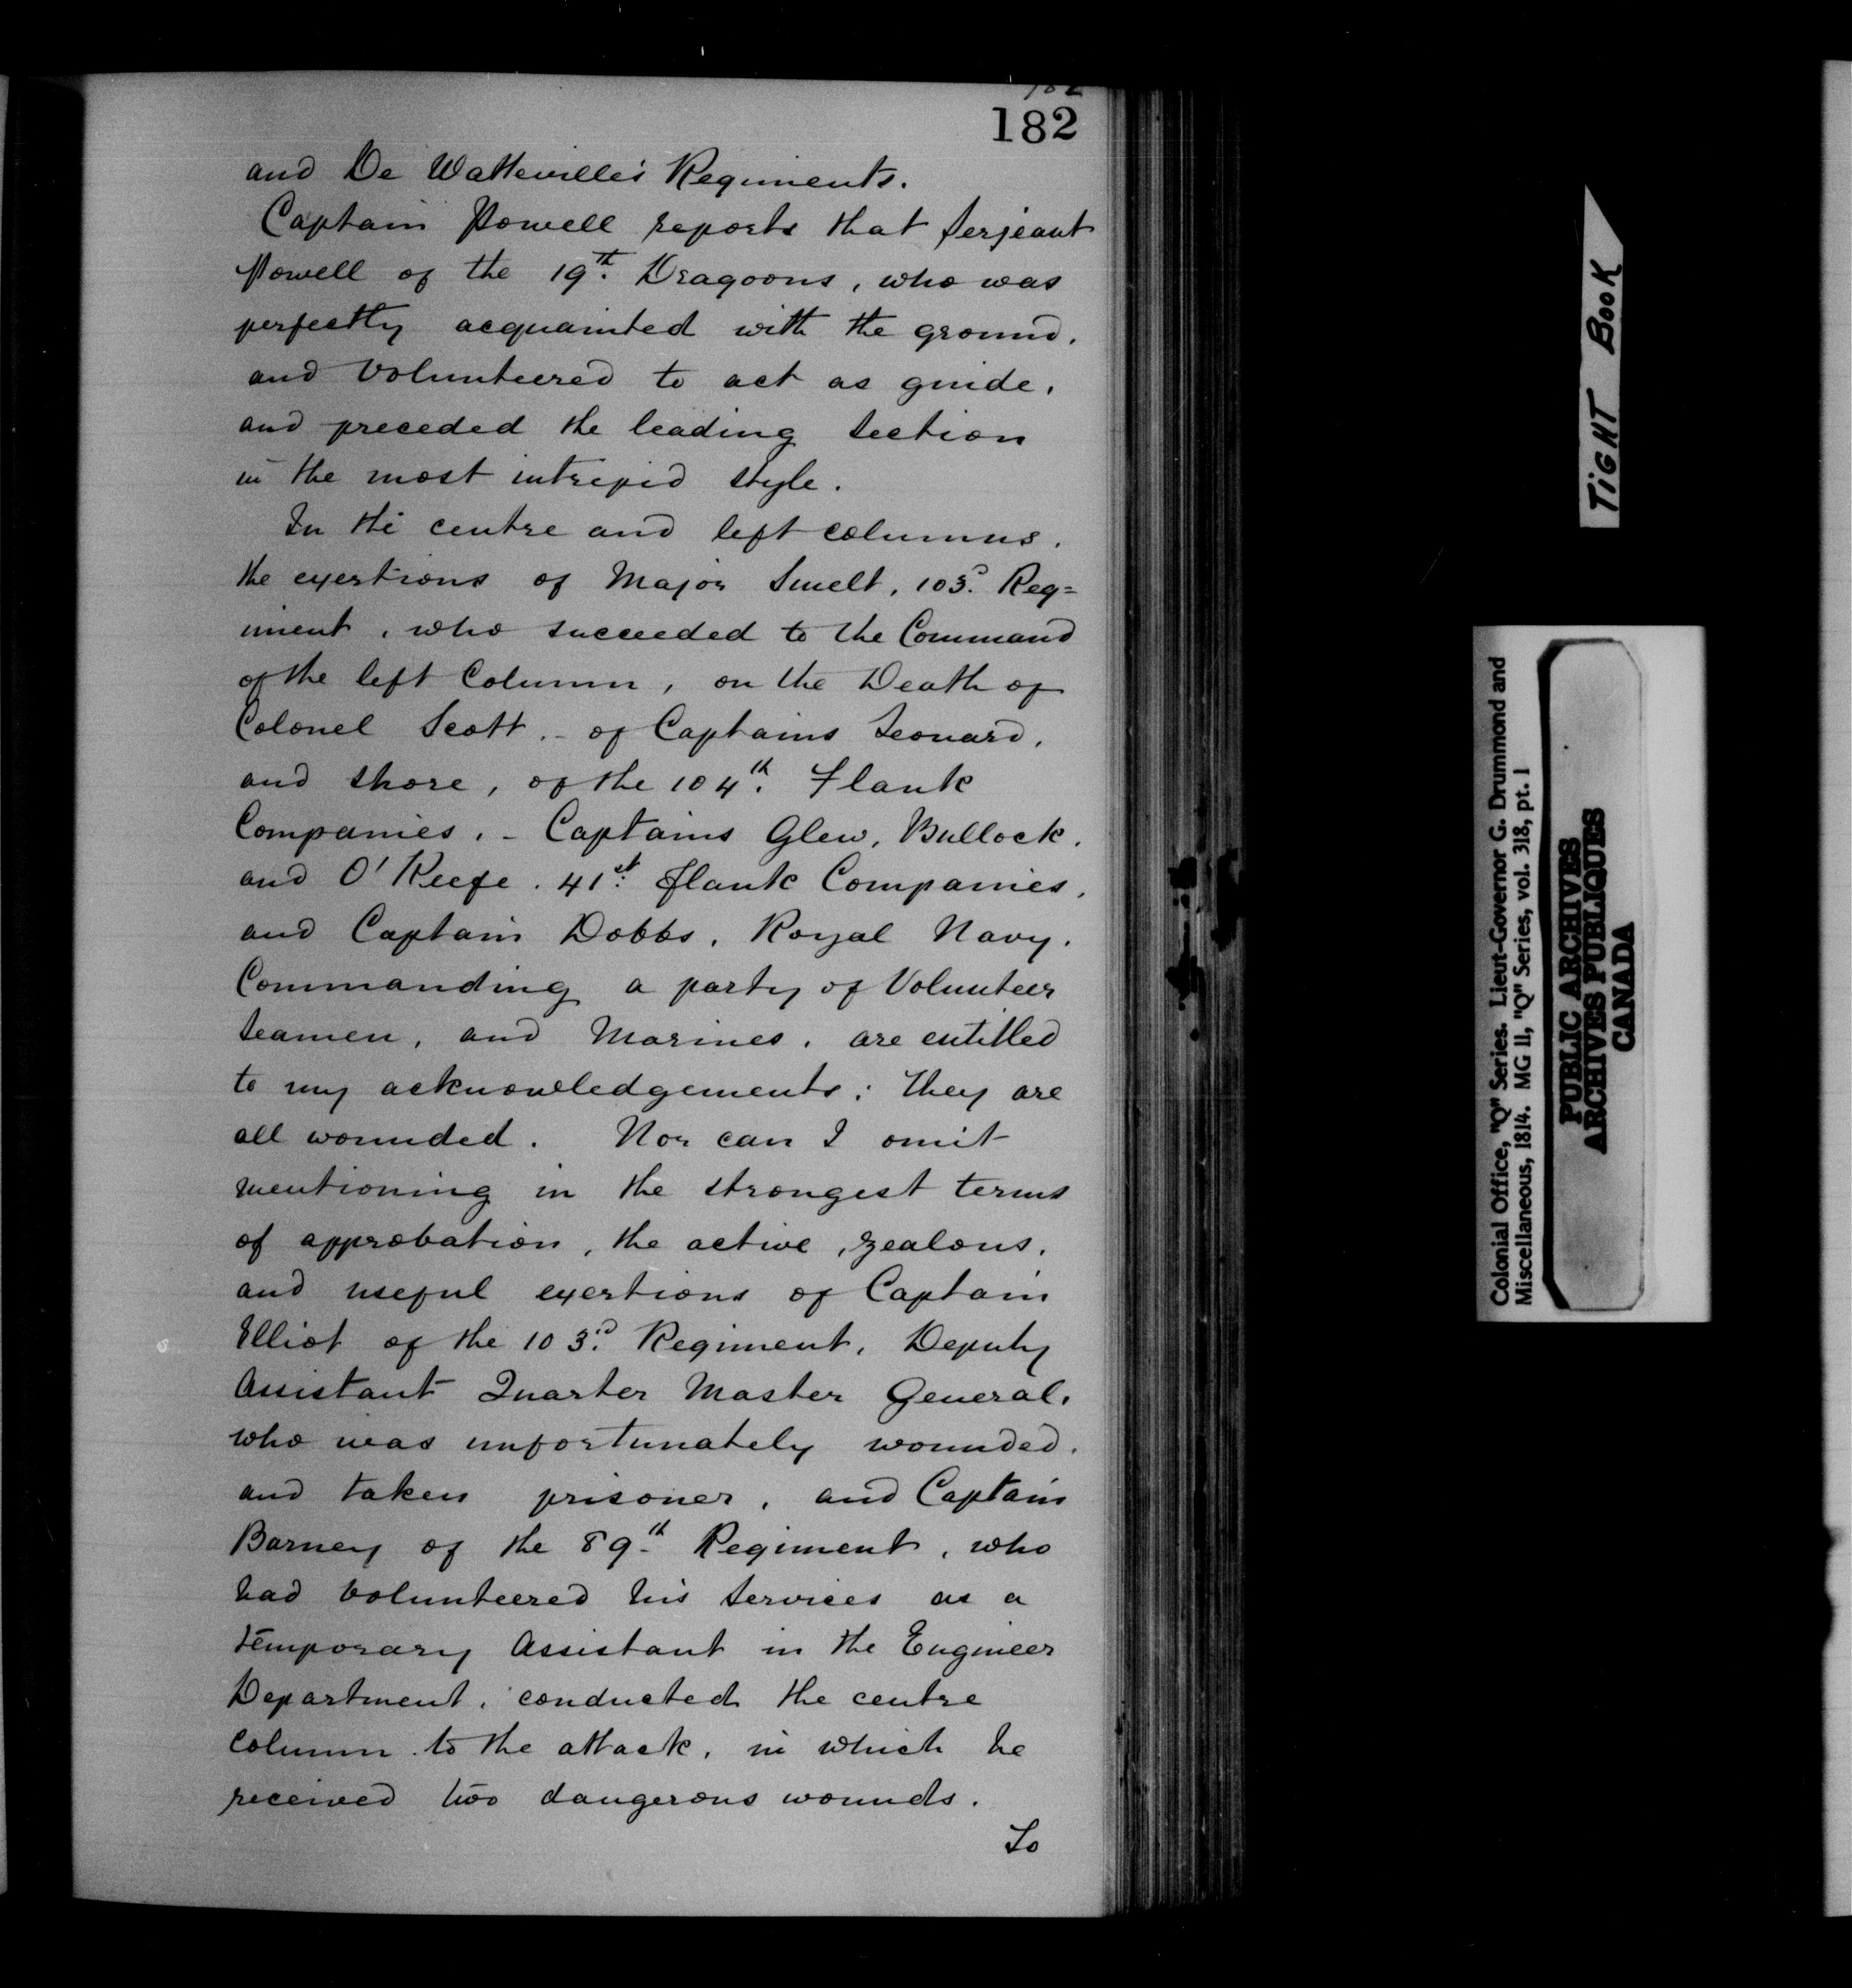 182
182
and De Watteville's Regiments.
Captain Powell reports that Serjeant
Powell of the 19th. Dragoons, who was
perfectly acquainted with the ground,
and volunteered to act as guide,
and preceded the leading Section
in the most intrepid style.
In the centre and left columns,
the exertions of Major Smelt, 103d. Reg=
iment, who succeeded to the Command
of the left Column, on the Death of
Colonel Scott, - of Captains Leonard,
and Shore, of the 104th. Flank
Companies, - Captains Glew, Bullock,
and O'Keefe, 41st. flank Companies,
and Captain Dobbs, Royal Navy,
Commanding a party of Volunteer
Seamen, and Marines, are entitled
to my acknowledgements; they are
all wounded. Nor can I omit
mentioning in the strongest terms
of approbation, the active, zealous,
and useful exertions of Captain
Elliot of the 103d. Regiment, Deputy
Assistant Quarter Master General,
who was unfortunately wounded,
and taken prisoner, and Captain
Barney of the 89th. Regiment, who
had volunteered his services as a
temporary Assistant in the Engineer
Department, conducted the centre
column to the attack, in which he
received two dangerous wounds.
To
TIGHT BOOK
Colonial Office, "Q" Series. Lieut-Governor G. Drummond and
Miscellaneous, 1814. MG 11, "Q" Series, vol. 318, pt. 1
PUBLIC ARCHIVES
ARCHIVES PUBLIQUES
CANADA